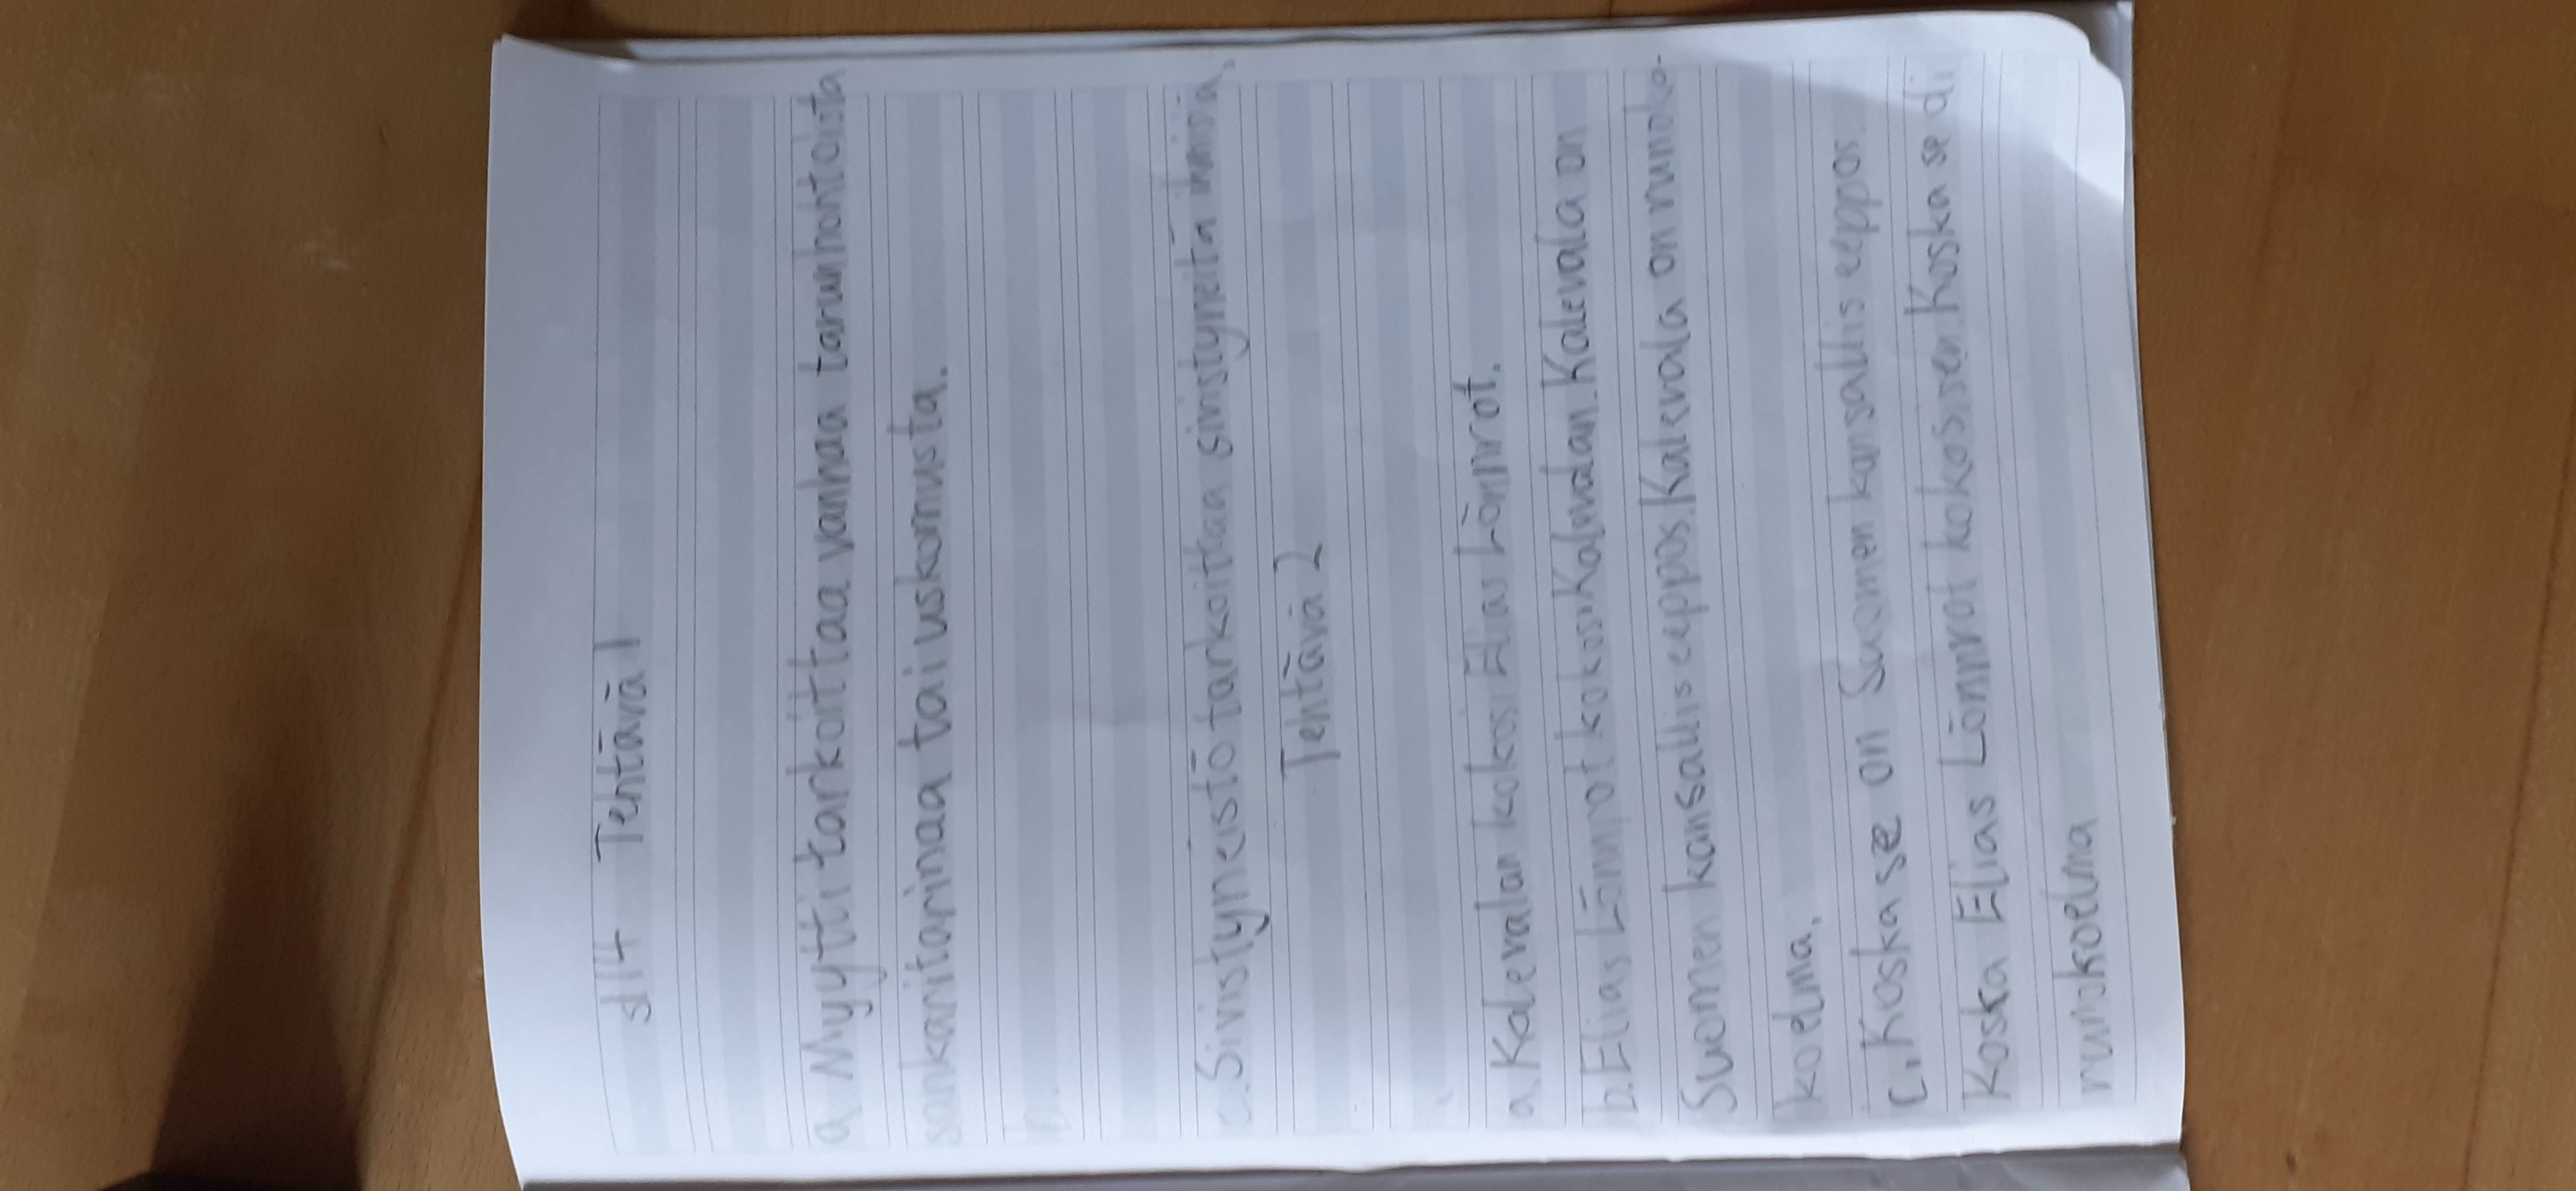 s114 Tehtävä 1
a Myytti tarkoittaa vanhaa tarunhohtoista
sankaritarinaa tai uskomusta.
b.
c. Sivistyneistö tarkoittaa sivistyneitä
Tehtävä 2
a. Kalevalan kokosi Elias Lönnrot.
b. Elias Lönnrot kokosi Kalevalan. Kalevala on
Suomen kansallis eepos. Kalevala on runoko-
koelma.
C. Koska se on Suomen kansallis eeppos
Koska Elias Lönnrot kokosi sen Koska se oli
runokoelma